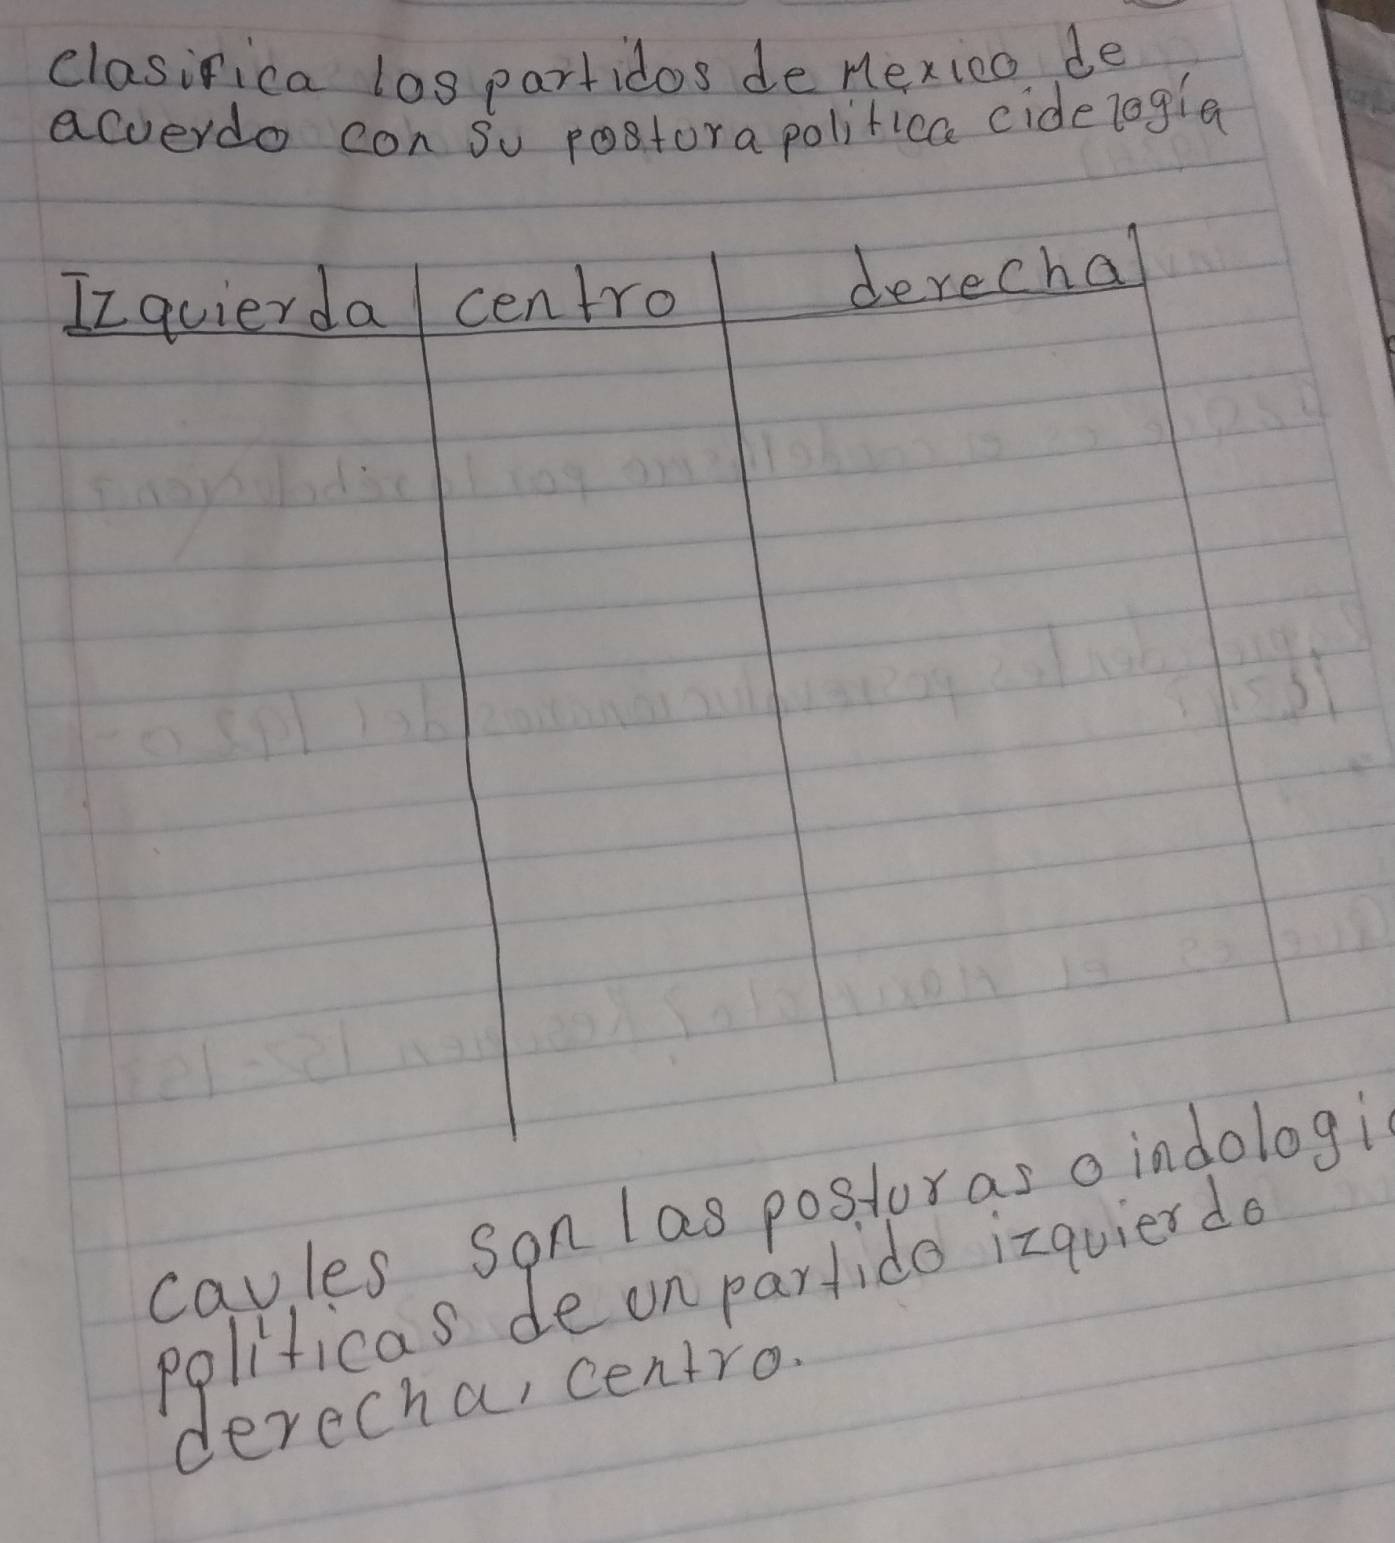 clasifica los partidos de Mexico de
acuerdo con su postura politica cidelogía
Izquierda centro derecha
caules son las posturas o indologi
politicas de un partido izquierdo
derecha, centro.